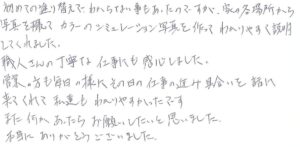 初めての塗り替えでわからない事もあったのですが、家の各場所から
写真を撮って カラーのシミュレーション写真を作って わかりやすく説明
してくれました。
職人さんの丁寧な仕事にも感心しました。
営業の方も毎日の様に その日の仕事の進み具合いを 話に
来てくれて 私達も わかりやすかったです
また 何か あったら お願いしたいと 思いました。
本当に ありがとう ございました。